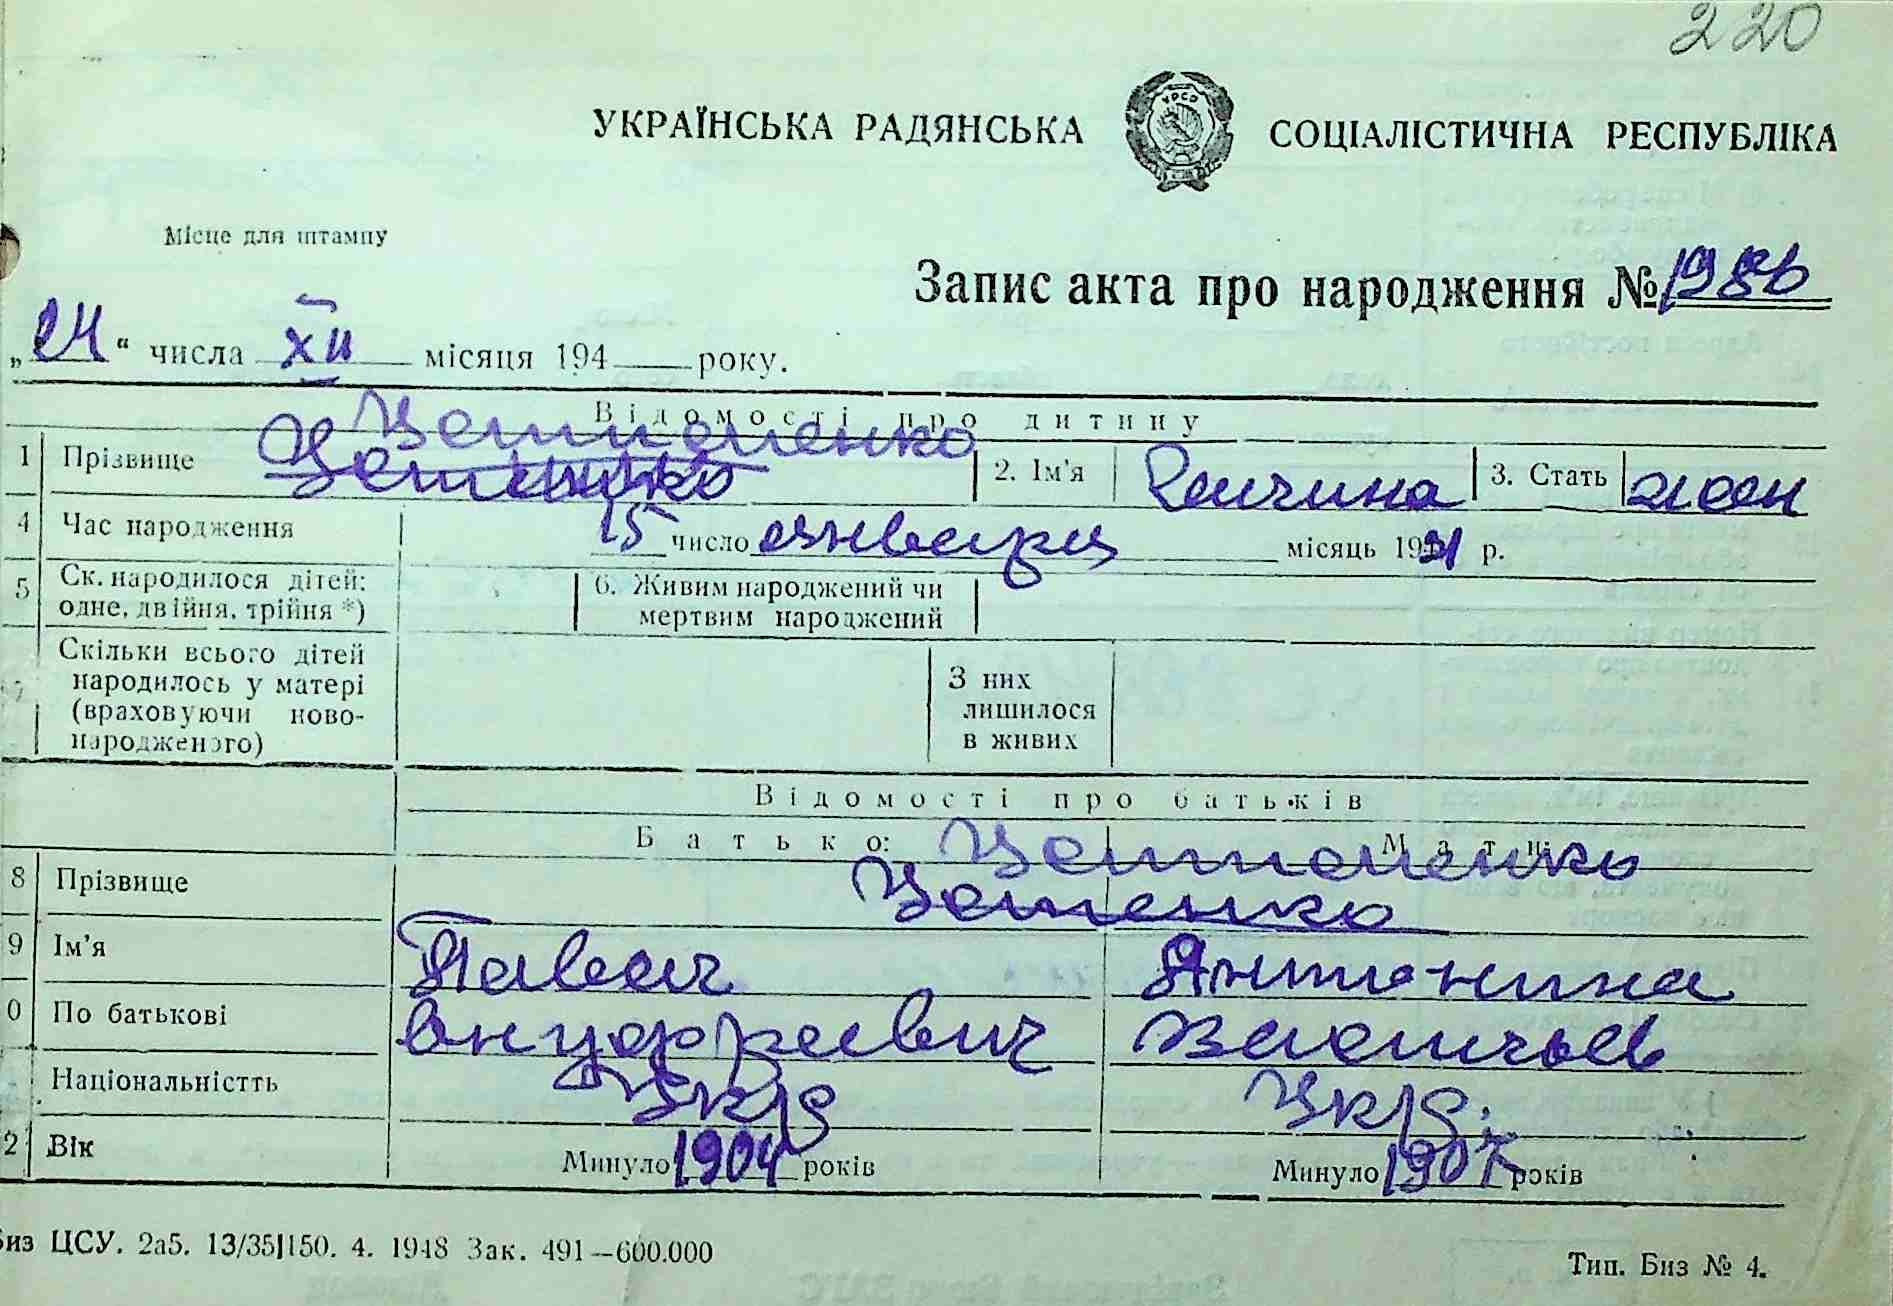 220
УКРАЇНСЬКА РАДЯНСЬКА СОЦІАЛІСТИЧНА РЕСПУБЛІКА
УРСР
Місце для штампу
Запис акта про народження №
„24“ числа XII місяця 194 року.
Відомості про дитину
1 Прізвище 2. Ім'я 3. Стать жен
4 Час народження 15 число января місяць 1931 р.
5 Ск. народилося дітей: одне, двійня, трійня *) 6. Живим народжений чи мертвим народжений
7 Скільки всього дітей народилось у матері (враховуючи ново-народженого) З них лишилося в живих
Відомості про батьків
Батько: Мати:
8 Прізвище
Цешенко
9 Ім'я Павел Антонина
0 По батькові Андреевич Васильев
Національністть Укр Укр.
2 Вік Минуло 1904 років Минуло 1907 років
Биз ЦСУ. 2а5. 13/35|150. 4. 1948 Зак. 491—600.000
Тип. Биз № 4.